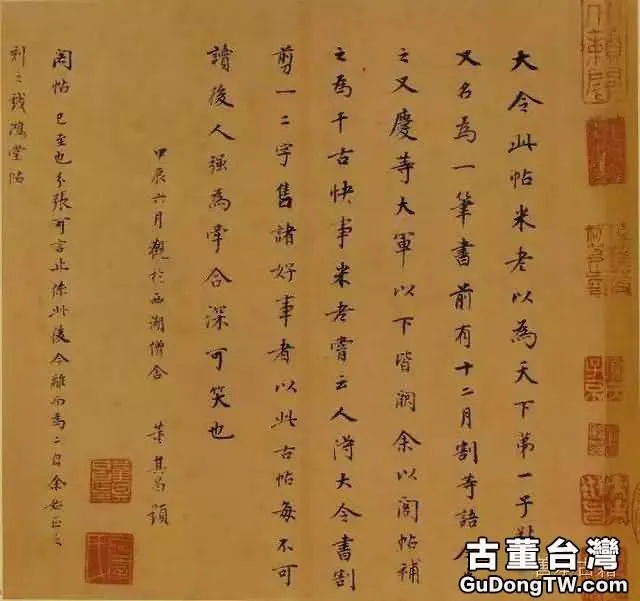 大令此帖米老以為天下第一子敬
又名為一筆書前有十二月割等語今
之又慶等大軍以下皆闕余以閣帖補
之為千古快事米老嘗云人得大令書割
剪一二字售諸好事者以此古帖每不可
讀後人強為牽合深可笑也
甲辰六月觀於西湖僧舍 董其昌題
閣帖已至也分張可言止係此後今離而為二自余始正之
刻之戲鴻堂帖
古董台灣
GuDongTW.com